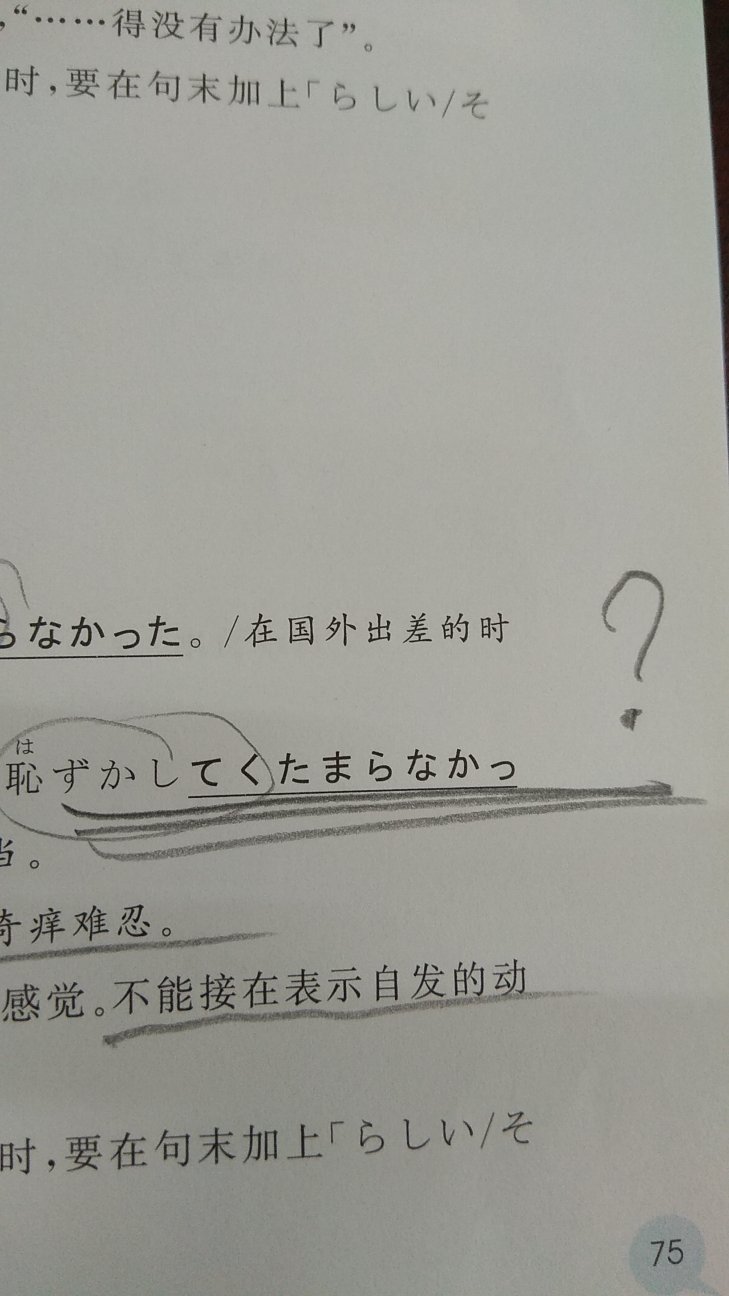 ，“……得没有办法了”。
时，要在句末加上「らしい/そ
らなかった。/在国外出差的时
?
は
恥ずかしてくたまらなかっ
当。
奇痒难忍。
感觉。不能接在表示自发的动
时，要在句末加上「らしい/そ
75